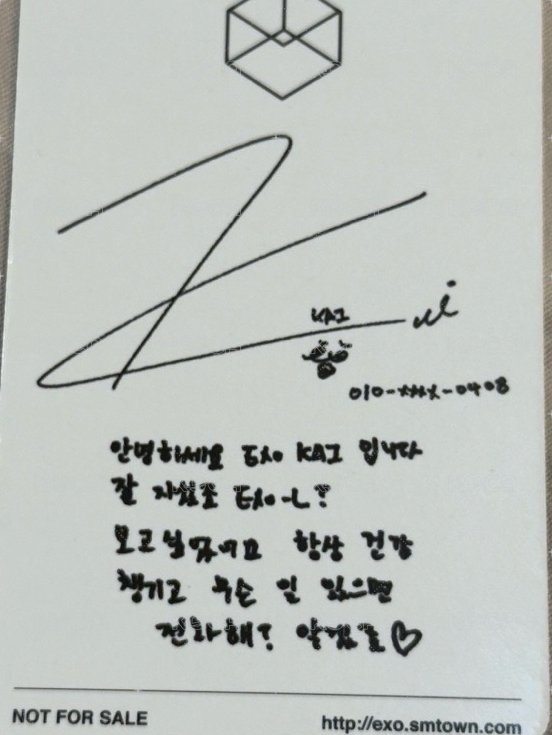 Kai
KAI
010-xxxx-0408
안녕하세요 EXO KAI 입니다
잘 지냈죠 EXO-L?
보고싶었어요 항상 건강
챙기고 무슨 일 있으면
전화해? 알겠죠♡
NOT FOR SALE
http://exo.smtown.com